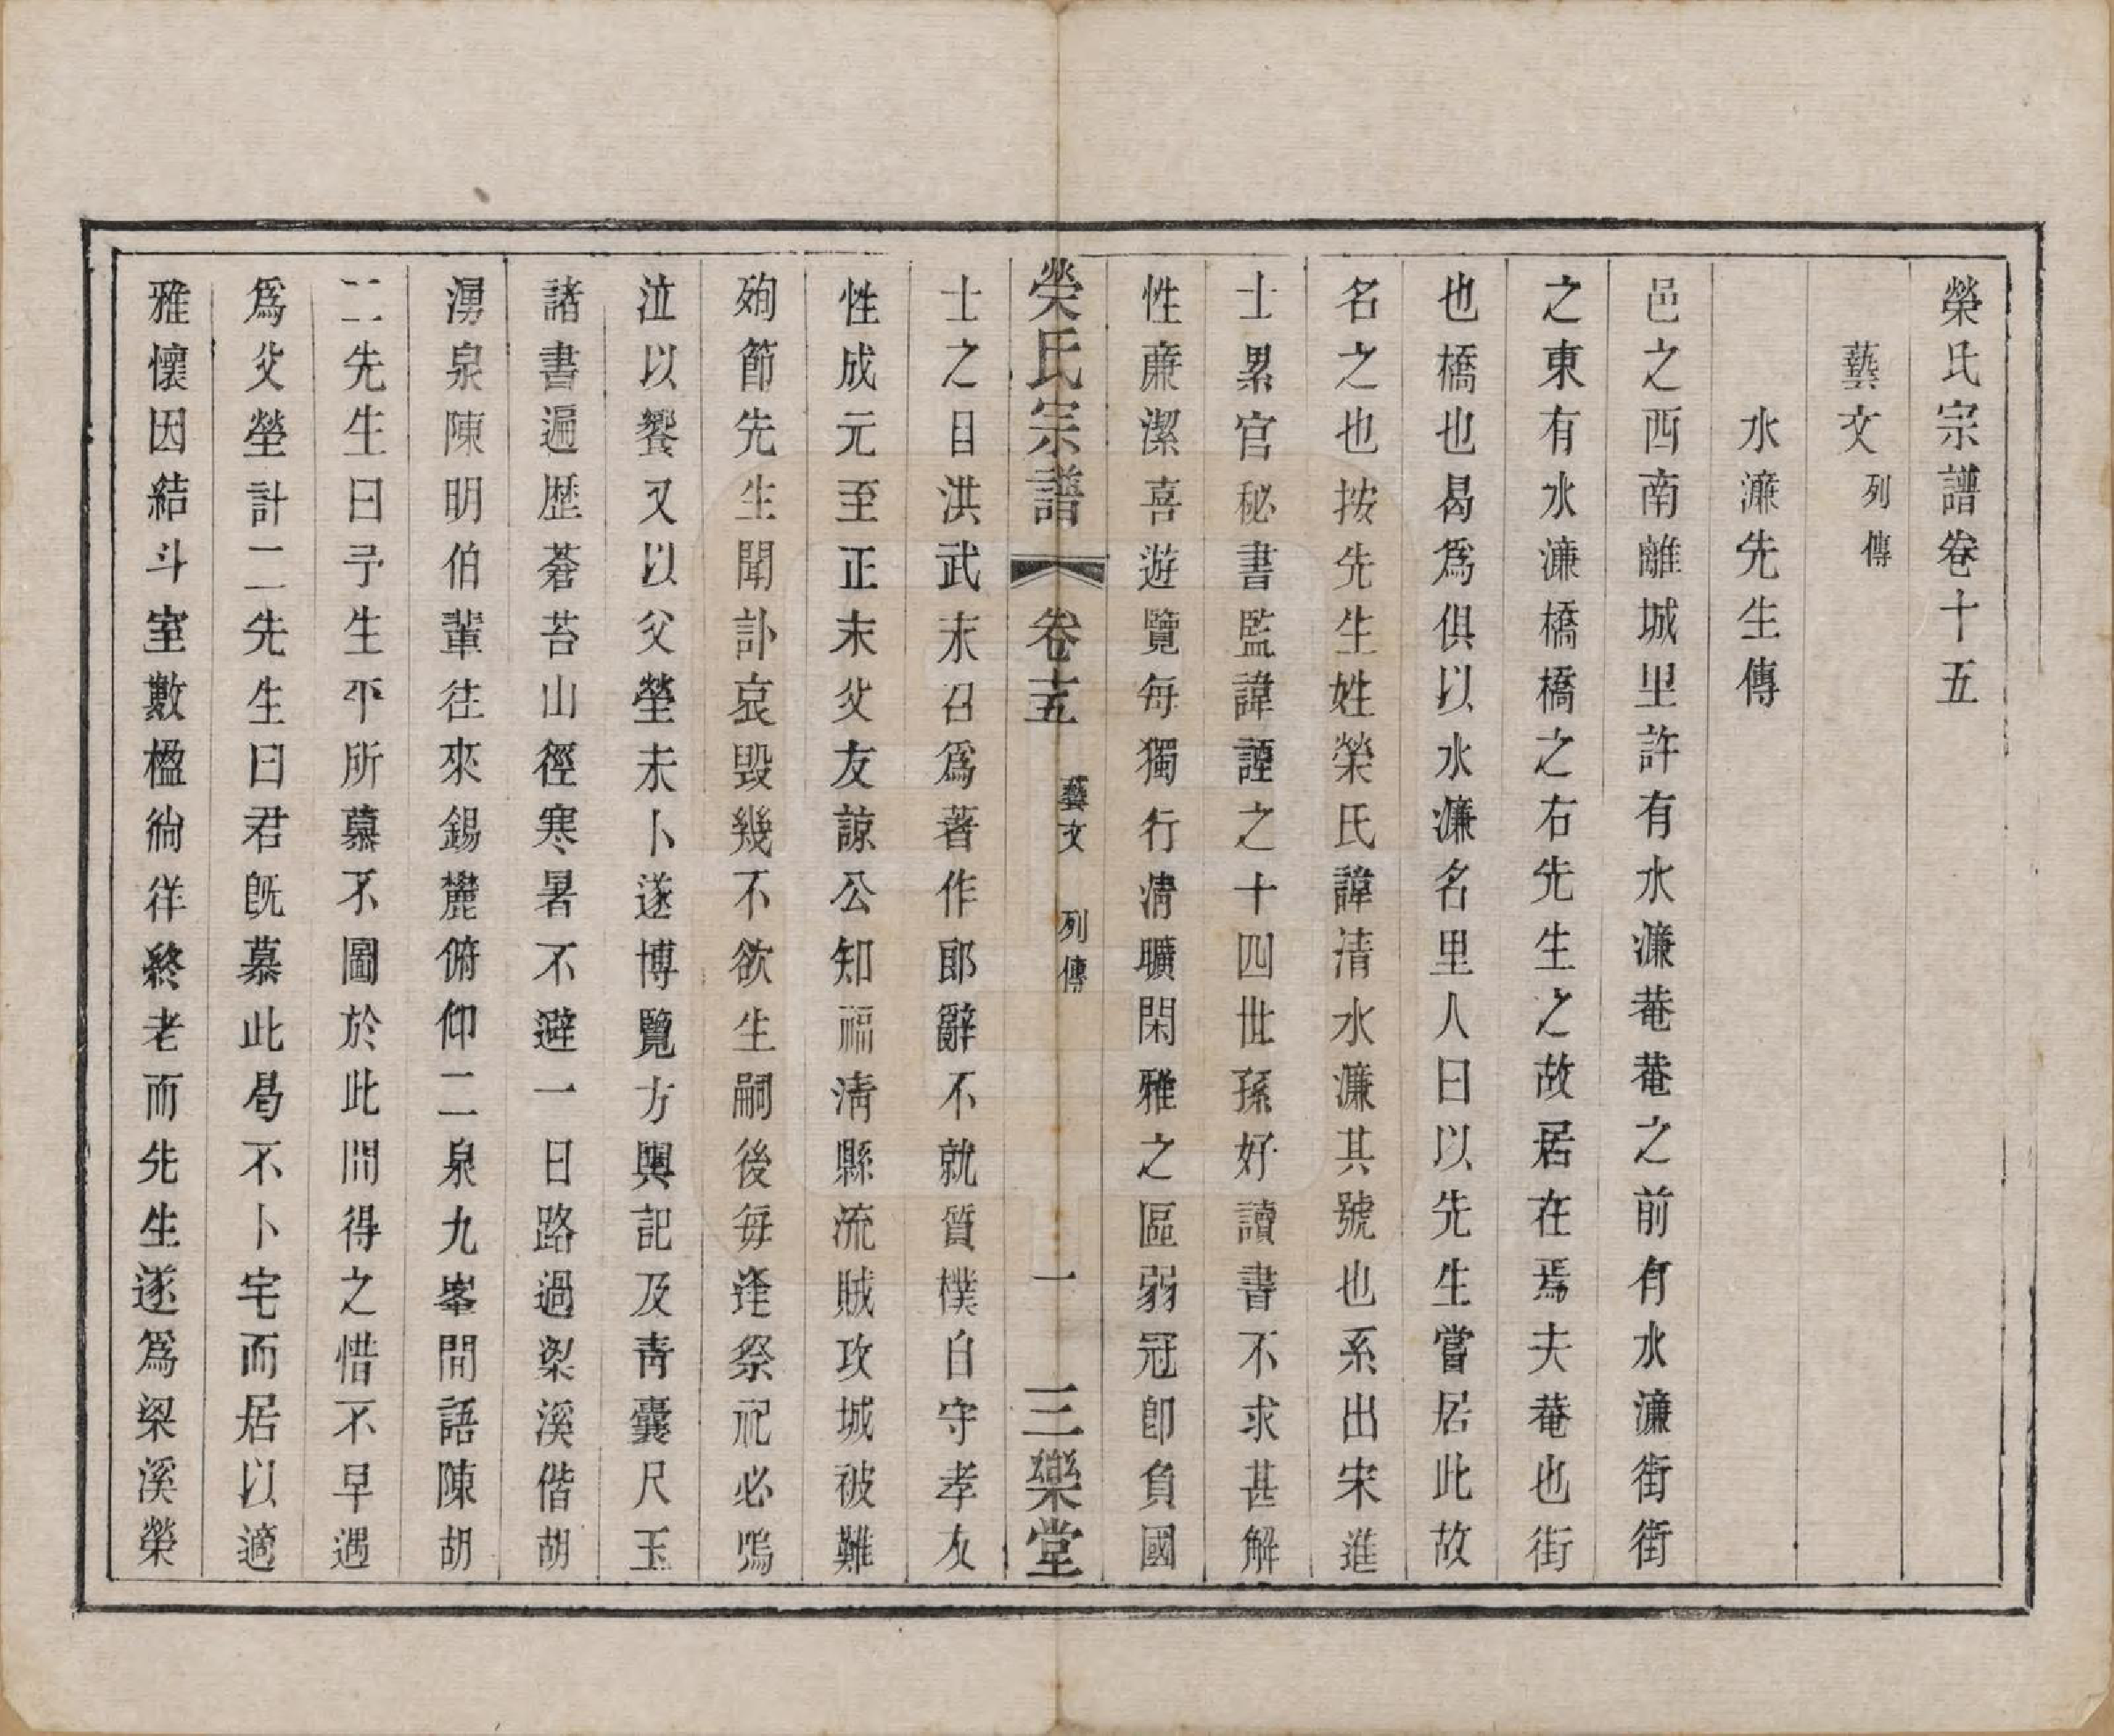 榮氏宗譜卷十五
藝文 列傳
水濂先生傳
邑之西南離城里許有水濂菴菴之前有水濂街街
之東有水濂橋橋之右先生之故居在焉夫菴也街
也橋也曷爲俱以水濂名里人曰以先生嘗居此故
名之也按先生姓榮氏諱清水濂其號也系出宋進
士累官秘書監諱諲之十四世孫好讀書不求甚解
性亷潔喜遊覽每獨行清曠閑雅之區弱冠卽負國
榮氏宗譜 卷十五 藝文 列傳 一 三樂堂
士之目洪武末召爲著作郎辭不就質樸自守孝友
性成元至正末父友諒公知福清縣流賊攻城被難
殉節先生聞訃哀毀幾不欲生嗣後每逢祭祀必嗚
泣以饗又以父塋未卜遂博覽方輿記及青囊尺玉
諸書遍歷蒼苔山徑寒暑不避一日路過梁溪偕胡
湧泉陳明伯輩往來錫麓俯仰二泉九峯間語陳胡
二先生曰予生平所慕不圖於此間得之惜不早遇
爲父塋計二先生曰君旣慕此曷不卜宅而居以適
雅懷因結斗室數楹徜徉終老而先生遂爲梁溪榮